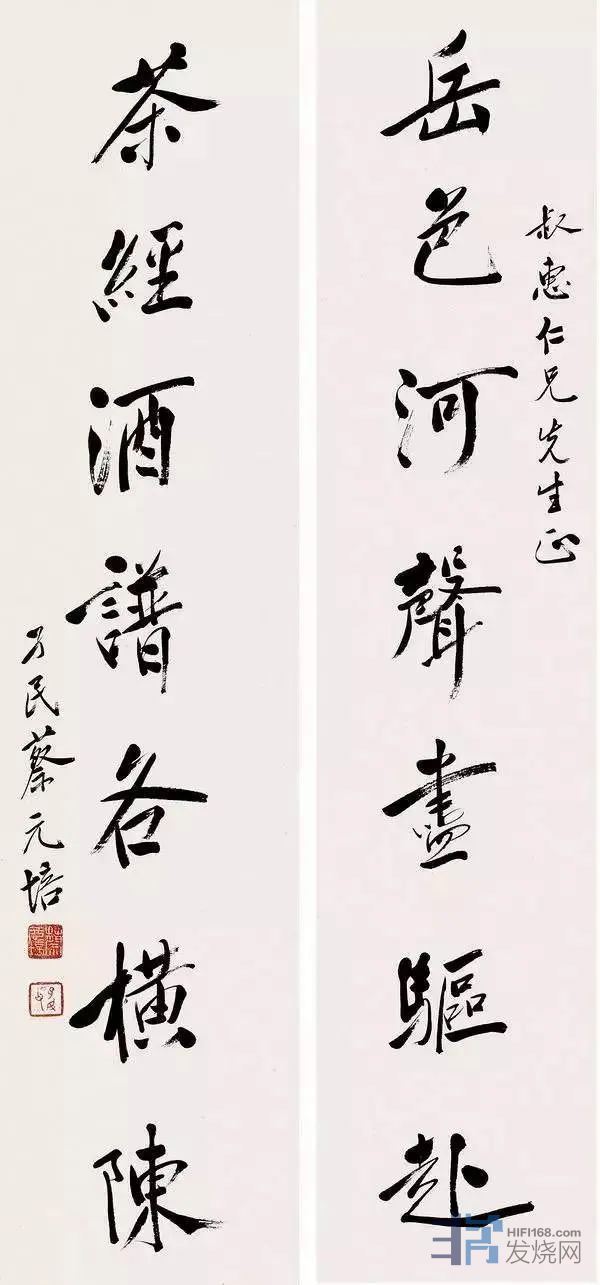 叔惠仁兄先生正
岳色河聲盡驅赴
茶經酒譜各橫陳
孑民蔡元培
HIFI168.com
发烧网